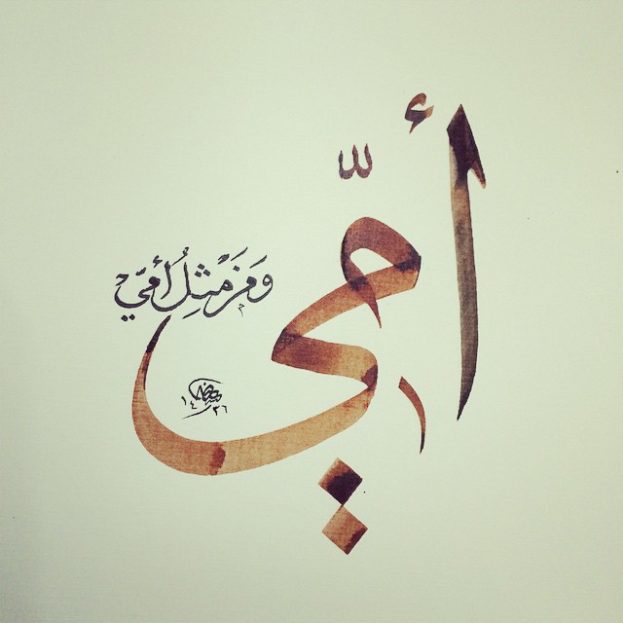 أمِّي
وَمَنْ مثلُ أمّي
١٤٣٦